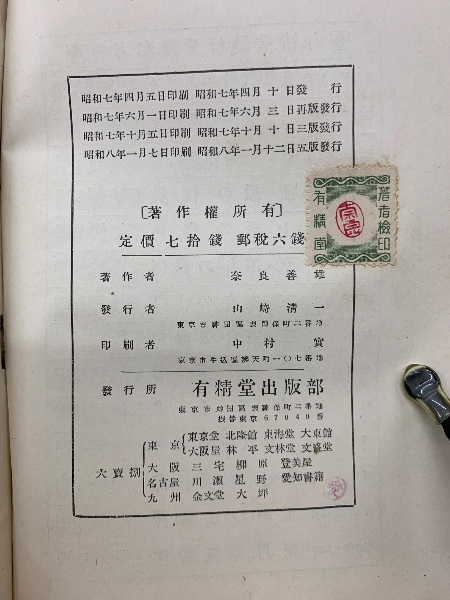 昭和七年四月五日印刷 昭和七年四月十日發行
昭和七年六月一日印刷 昭和七年六月三日再版發行
昭和七年十月五日印刷 昭和七年十月十日三版發行
昭和八年一月七日印刷 昭和八年一月十二日五版發行
〔著作權所有〕
定價七拾錢 郵稅六錢
著作者 奈良善雄
發行者 山崎清一
東京市神田區裏神保町二番地
印刷者 中村實
東京市牛込區辨天町一〇七番地
發行所 有精堂出版部
東京市神田區裏神保町二番地
振替東京67949番
大賣捌
東京 東京堂 北隆館 東海堂 大東館
大阪屋 林平 文林堂 文盛堂
大阪 三宅 柳原 登美屋
名古屋 川瀨 星野 愛知書籍
九州 金文堂 大坪
著者檢印
有精堂